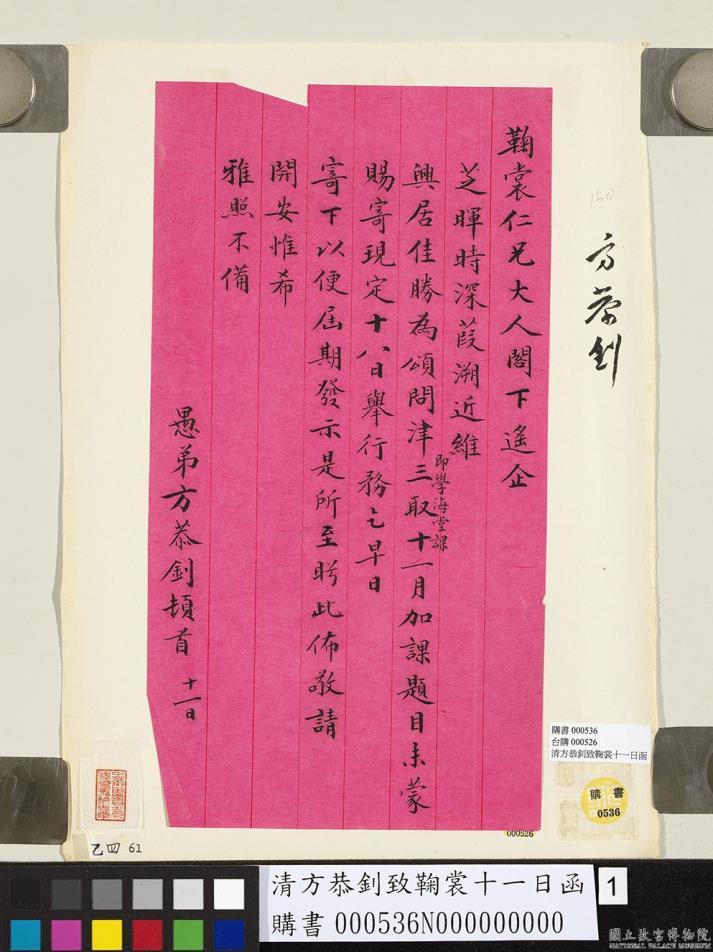 鞠裳仁兄大人閣下遙企
芝暉時深葭溯近維
興居佳勝為頌問津三取十一月加課題目未蒙
即學海堂課
賜寄現定十八日舉行務乞早日
寄下以便屆期發示是所至盻此佈敬請
開安惟希
雅照不備
愚弟方恭釗頓首 十一日
方恭釗
160
購書 000536
台購 000526
清方恭釗致鞠裳十一日函
購書
0536
000526
乙四 61
清方恭釗致鞠裳十一日函
購書 000536N000000000
1
國立故宮博物院
NATIONAL PALACE MUSEUM